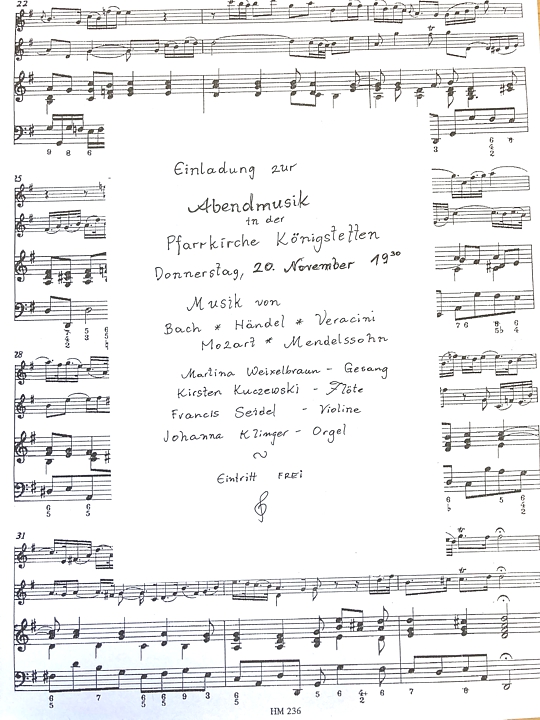 22
9 8 6
3
6
4
2
Einladung zur
Abendmusik
in der
Pfarrkirche Königstetten
Donnerstag, 20. November 19³⁰
Musik von
Bach * Händel * Veracini
Mozart * Mendelssohn
Martina Weixelbraun - Gesang
Kirsten Kuczewski - Flöte
Francis Seidel - Violine
Johanna Klinger - Orgel
~
Eintritt FREI
25
28
31
HM 236